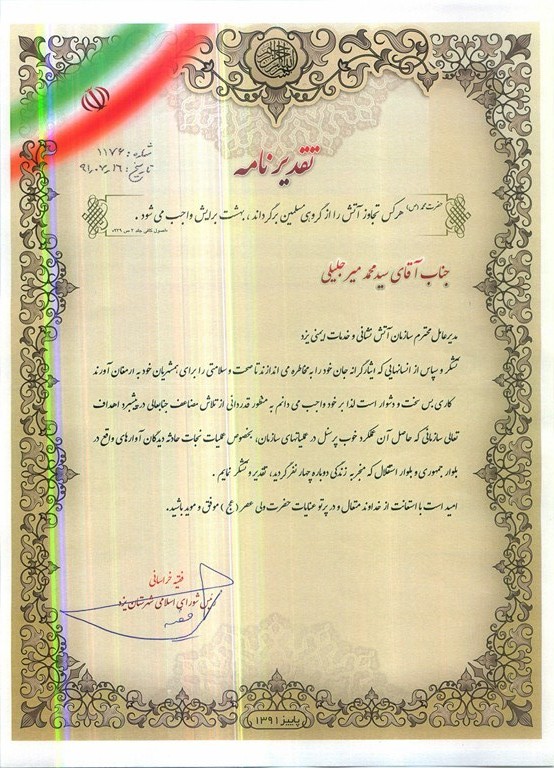 شماره: ۱۱۷۶
تاریخ: ۹۱،۰۷،۱۶
تقدیرنامه
حضرت محمد (ص) هرکس تجاوز آتش را از گروهی مسلمین برگرداند، بهشت برایش واجب می شود.
«اصول کافی جلد ۲ ص ۲۳۹»
جناب آقای سیدمحمد میرجلیلی
مدیرعامل محترم سازمان آتش نشانی و خدمات ایمنی یزد
تشکر و سپاس از انسانهایی که ایثارگرانه جان خود را به مخاطره می اندازند تا صحت و سلامتی را برای همشهریان خود به ارمغان آورند
کاری بس سخت و دشوار است لذا بر خود واجب می دانم به منظور قدردانی از تلاش مضاعف جنابعالی در پیشبرد اهداف
تعالی سازمانی که حاصل آن عملکرد خوب پرسنل در عملیاتهای سازمان، بخصوص عملیات نجات حادثه دیدگان آوارهای واقع در
بلوار جمهوری و بلوار استقلال که منجر به زندگی دوباره چهار نفر گردید، تقدیر و تشکر نمایم.
امید است با استعانت از خداوند متعال و در پرتو عنایات حضرت ولی عصر (عج) موفق و موید باشید.
فقیه خراسانی
رئیس شورای اسلامی شهرستان یزد
پاییز ۱۳۹۱